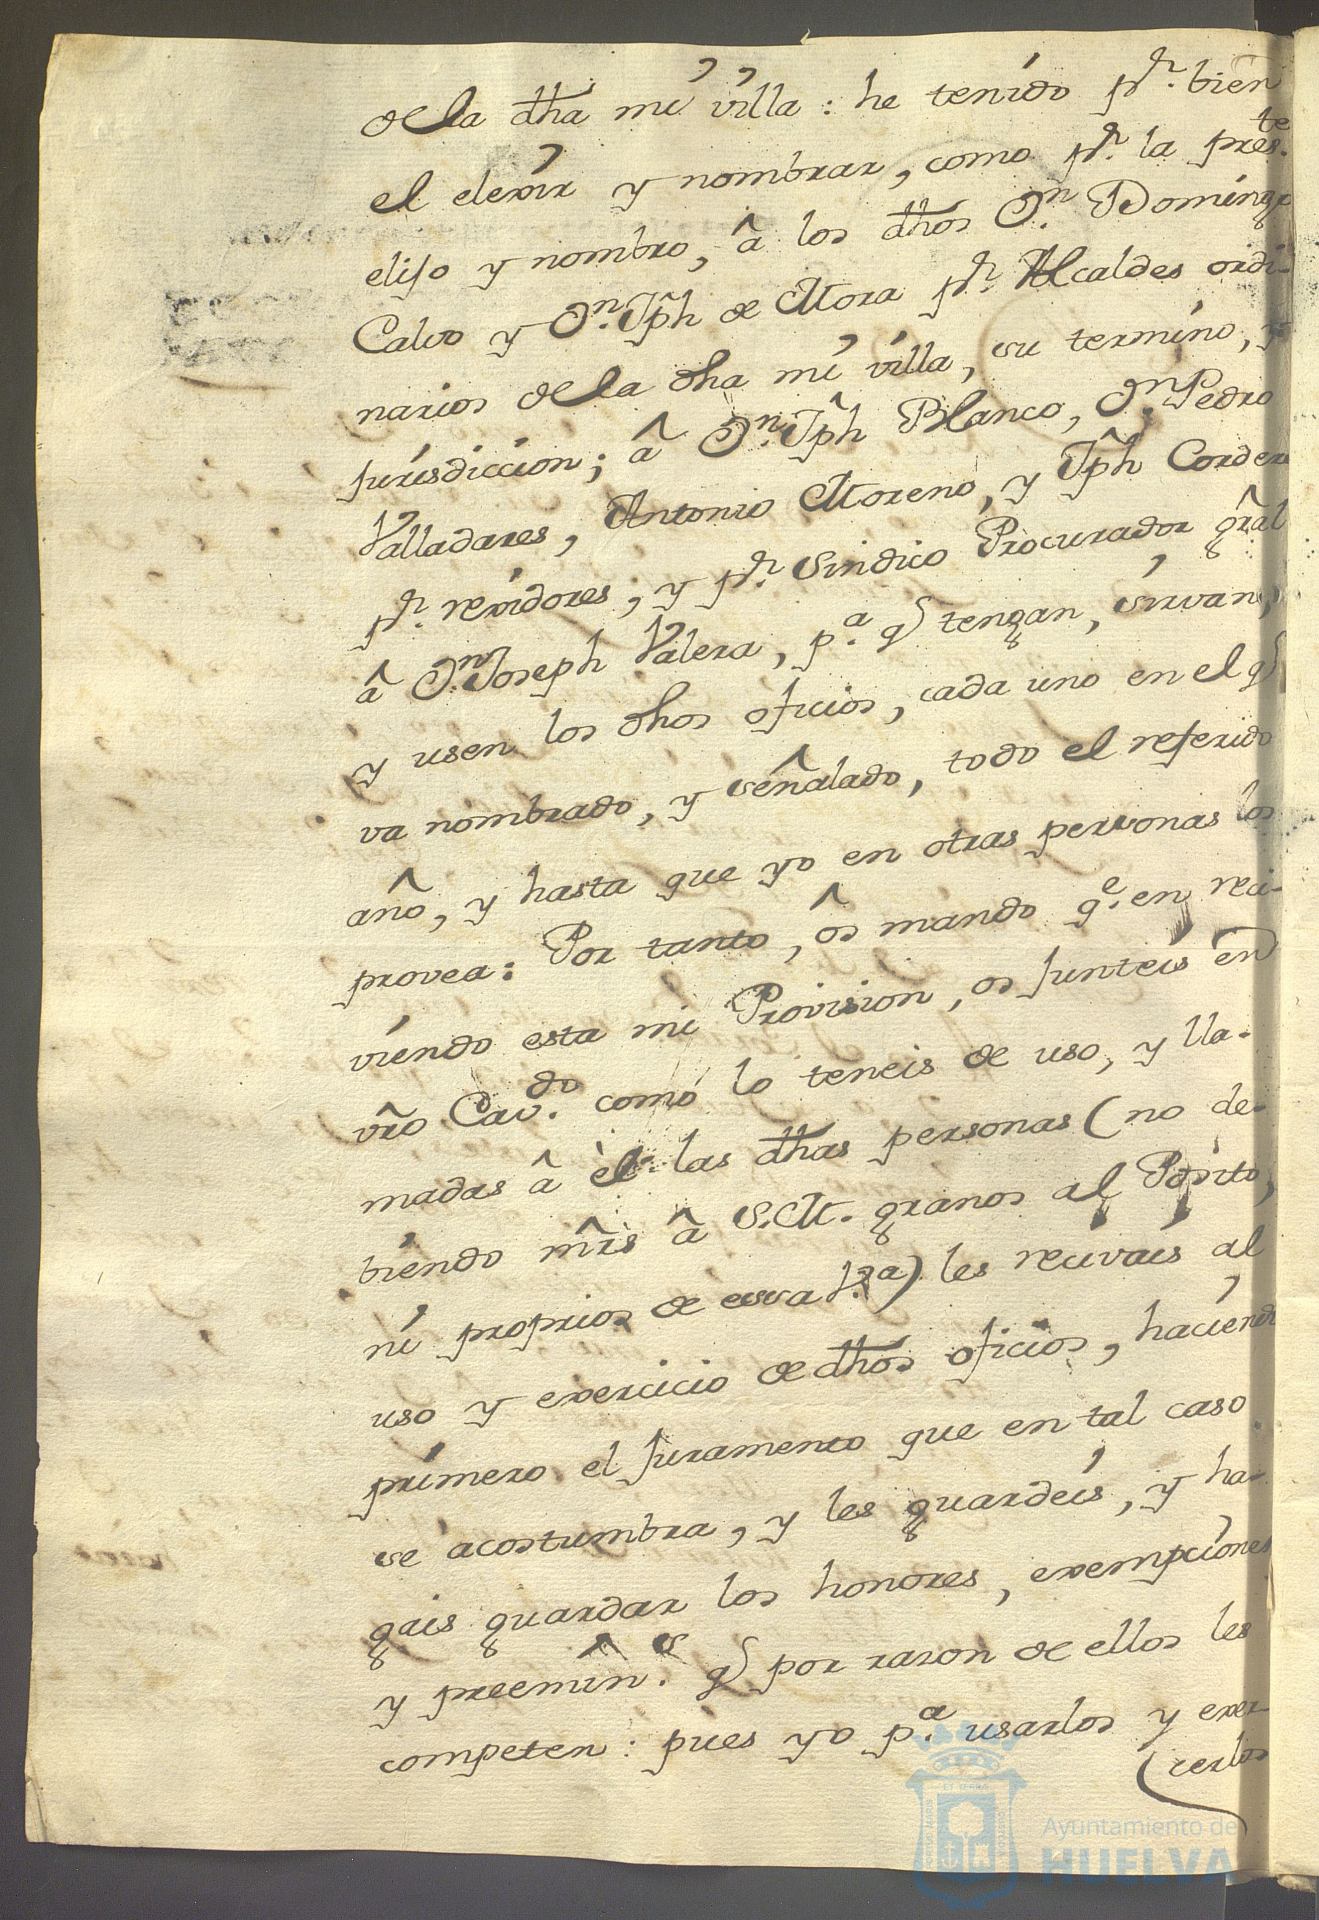 de la dha mi villa: he tenido pr. bien
el elexir y nombrar, como pr. la preste.
elijo y nombro, â los dhos Dn. Domingo
Calvo y Dn. Jph de Mora pr. Alcaldes ordi-
narios de la dha mi villa, su termino, y
jurisdiccion; â Dn. Jph Blanco, Dn. Pedro
Valladares, Antonio Moreno, y Jph Cordero
pr. rexidores; y pr. Sindico Procurador gral
â Dn. Joseph Valera, pa. q tengan, sirvan,
y usen los dhos oficios, cada uno en el q
va nombrado, y señalado, todo el referido
año, y hasta que yo en otras personas los
provea: Por tanto, os mando qe. en reci-
viendo esta mi Provision, os junteis en
vro Cavdo. como lo teneis de uso, y lla-
madas â èl las dhas personas (no de-
biendo mrs â S.M. granos al Posito,
ni proprios de essa) les recivais al
uso y exercicio de dhos oficios, haciendo
primero el juramento que en tal caso
se acostumbra, y les guardeis, y ha-
gais guardar los honores, exempciones
y preemins. q por razon de ellos les
competen: pues yo pa. usarlos y exer-
cerlos
Ayuntamiento de
HUELVA